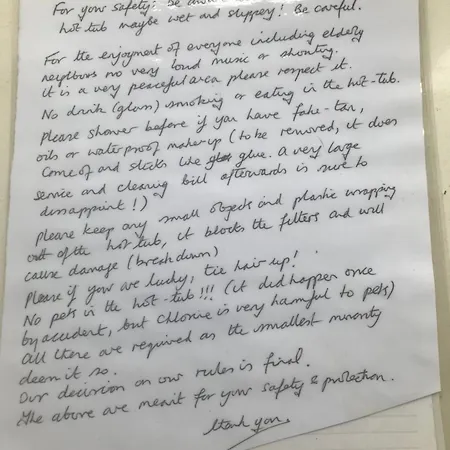 For your safety: be
hot tub maybe wet and slippey! Be careful.
For the enjoyment of everyone including elderly
neighbours no very loud music or shouting.
it is a very peaceful area please respect it.
No drink (glass) smoking or eating in the hot-tub.
Please shower before if you have fake-tan,
oils or waterproof make-up (to be removed, it does
come of and sticks like glue. A very large
service and cleaning bill afterwards is sure to
dissappoint!)
please keep any small objects and plastic wrapping
out of the hot tub, it blocks the filters and will
cause damage (breakdown)
Please if your are lucky, tie hair up!
No pets in the hot-tub!!! (it did happen once
by accident, but chlorine is very harmful to pets)
All these are required as the smallest minority
deem it so.
Our decision on our rules is final.
The above are meant for your safety & protection.
thank you